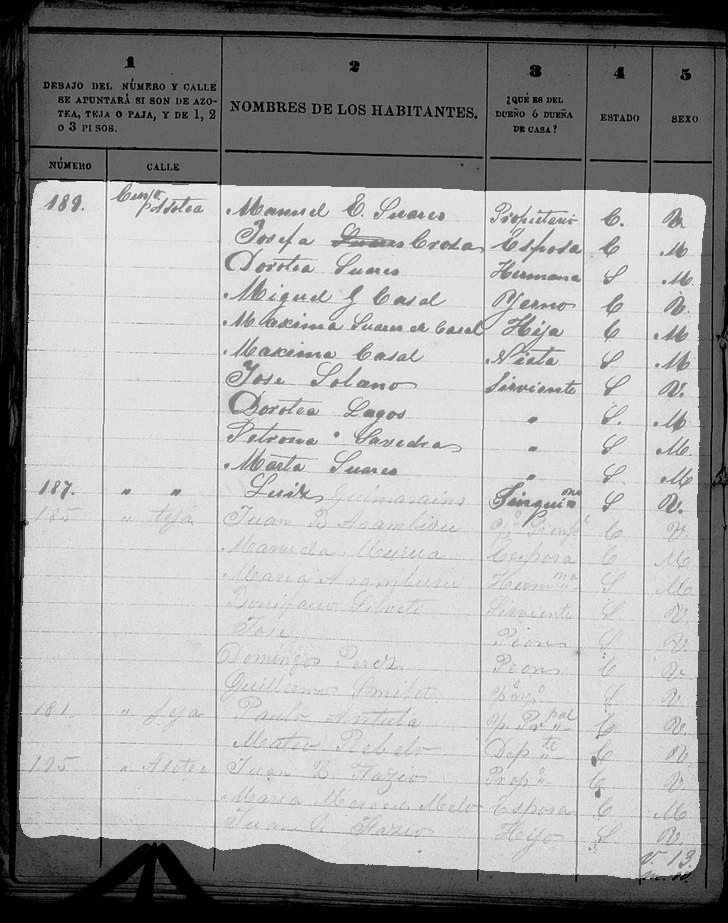 1
DEBAJO DEL NÚMERO Y CALLE
SE APUNTARÁ SI SON DE AZO-
TEA, TEJA O PAJA, Y DE 1, 2
O 3 PISOS.
2
NOMBRES DE LOS HABITANTES.
3
¿QUÉ ES DEL
DUEÑO Ó DUEÑA
DE CASA?
4
ESTADO
5
SEXO
NÚMERO CALLE
189. Azotea Manuel E. Suares Propietario C. V.
Josefa Suares Crosa Esposa C M
Dorotea Suares Hermana S M.
Miguel G Casal Yerno C V.
Maxima Suares de Casal Hija C M
Maxima Casal Nieta S M
Jose Solano Sirviente S V.
Dorotea Lagos " S. M
Petrona Savedra " S M.
Marta Suares " S. M
187. " " Luis Guimarains S V.
185 " teja Juan B Aramburu C V.
Manuela Esposa C M
Maria Aramburu S M
Bonifacio Sirviente S V.
Jose Peon S V
Domingos Perez Peon C V.
Guillermo S V
181. " teja Paulo C V
Mateo Rebelo C V
195 " Asotea Juan B. Fazio Prop. C V.
Maria Melo Esposa C M
Juan Fazio Hijo S V.
V. 13.